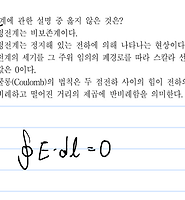 에 관한 설명 중 옳지 않은 것은?
전계는 비보존계이다.
전계는 정지해 있는 전하에 의해 나타나는 현상이다
전계의 세기를 그 주위 임의의 폐경로를 따라 스칼라 선
값은 0이다.
(Coulomb)의 법칙은 두 점전하 사이의 힘이 전하의
비례하고 떨어진 거리의 제곱에 반비례함을 의미한다.
∮E·dl=0